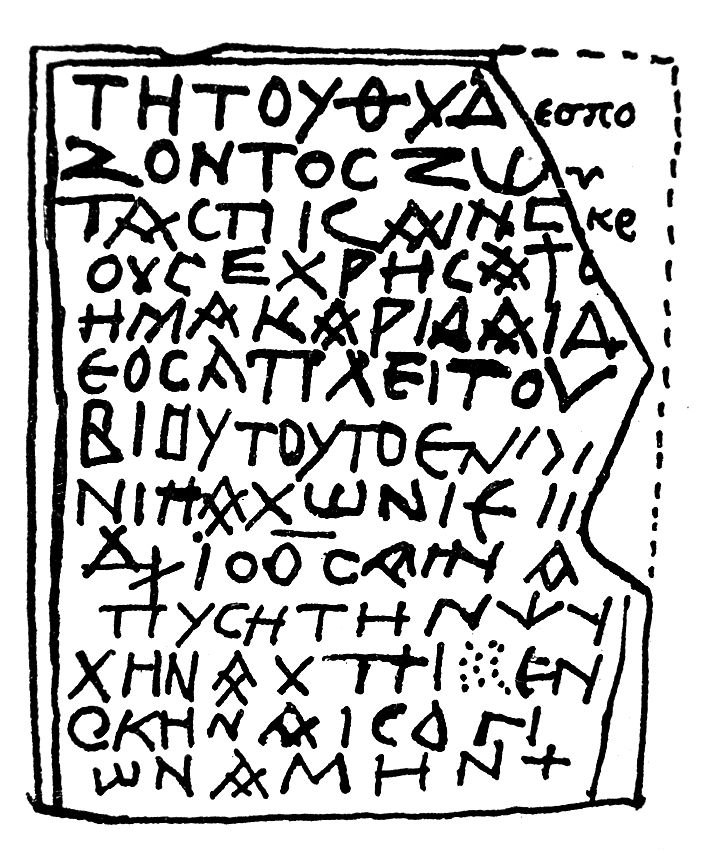 ΤΗΤΟΥΘΥΔεσπο
ΖΟΝΤΟCΖΩν
ΤΑCΤΙCΑΙΝΕκρ
ΟΥCΕΧΡΗCΑΤΟ
ΗΜΑΚΑΡΙΔΑΙΔ
ΕΟCΑΠΧΕΙΤΟΥ
ΒΙΟΥΤΟΥΤΟΕΝ
ΝΙΜΑΧΩΝΙΕ
ΙΟΟCΑΗΝ Α
ΠΥCΗΤΗΝΨΥ
ΧΗΝΑΧΤΗΙ ΕΝ
CΚΗΝΑΙCΟΓΙ
ΩΝΑΜΗΝ+